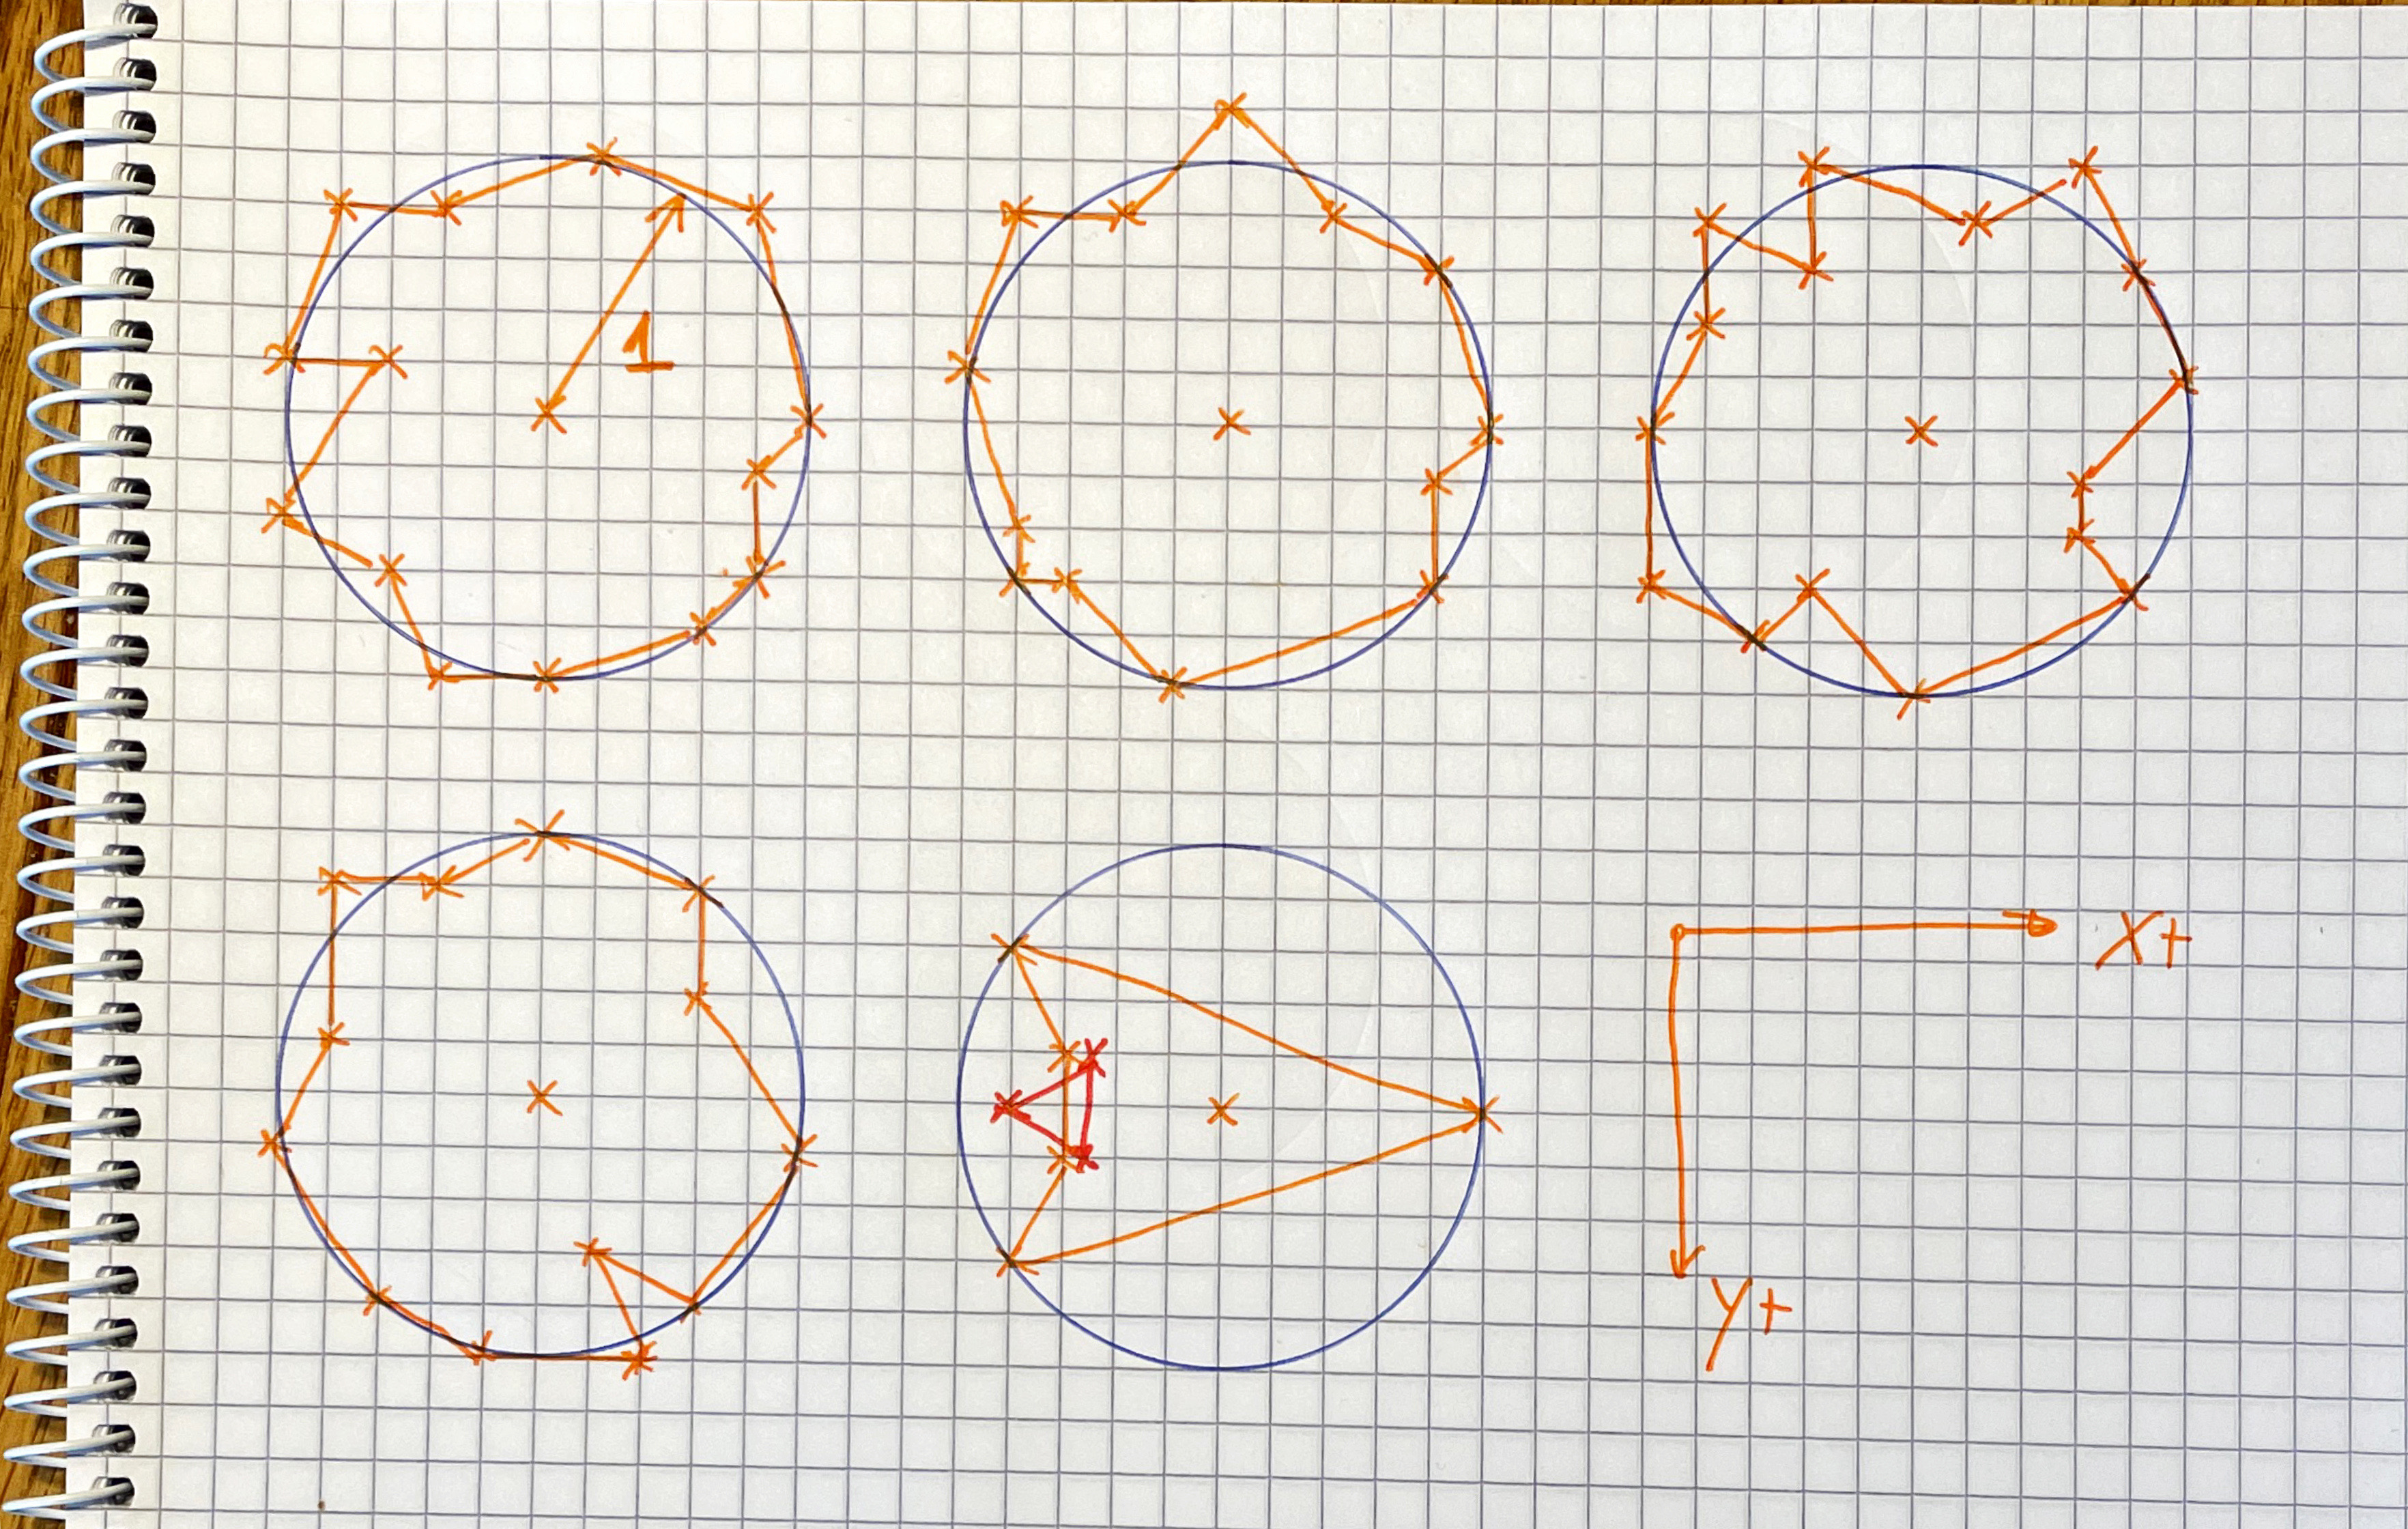 1
X+
Y+